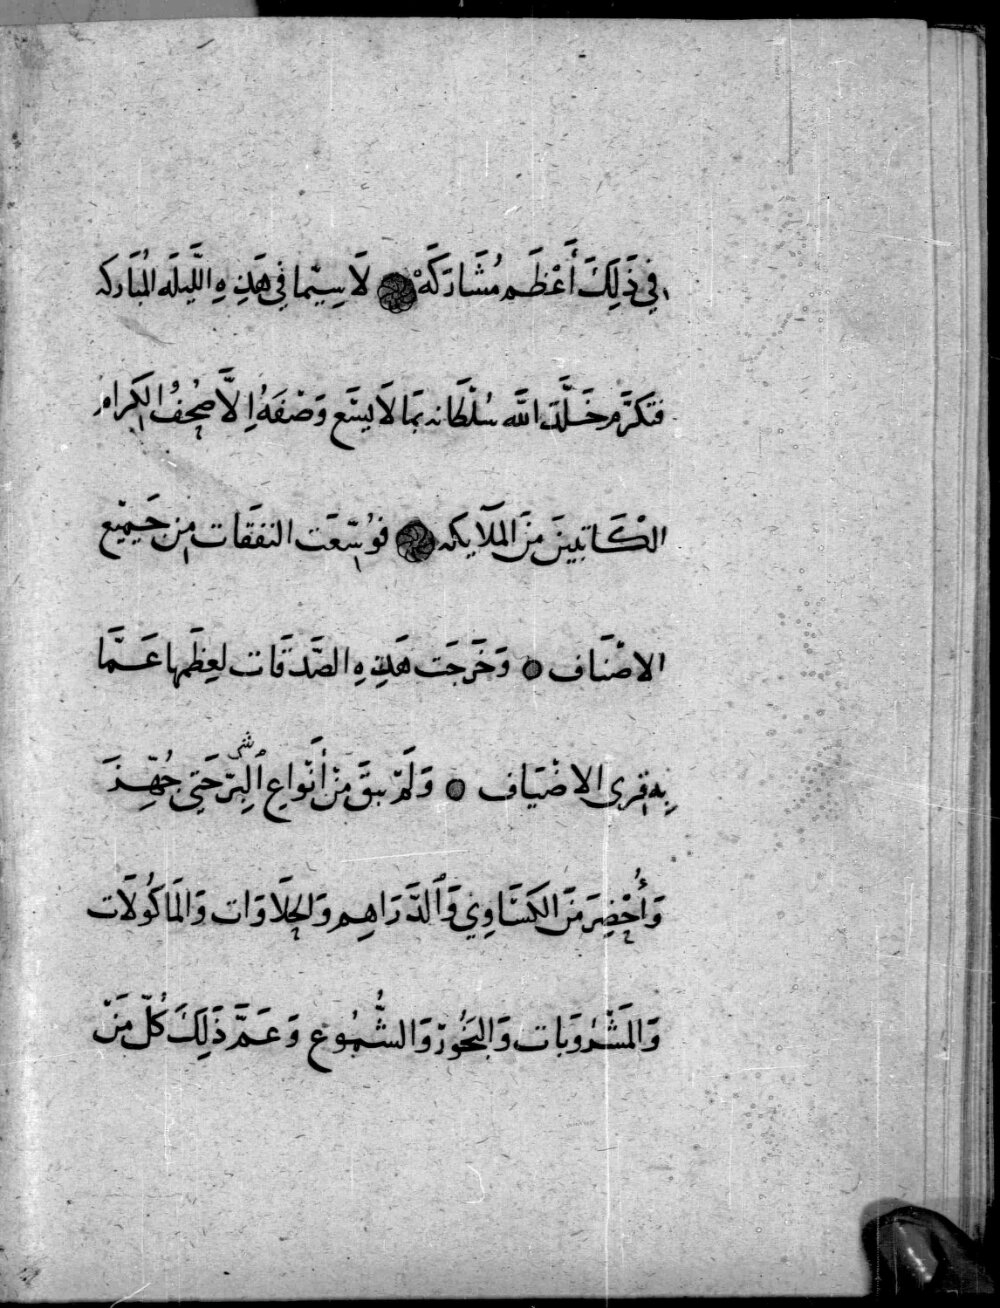 في ذَلِكَ أَعْظَم مُشَارَكَهْ لَا سِيّما في هَذِهِ اللَّيلَه المُبَاركه
فتكَرَّم خَلَّدَ اللَّه سُلْطَانه بمَا لَا يسَع وَصْفَهُ إلَّا صُحفُ الكَرام
الكَاتِبينَ مِنَ المَلَايكه فوُسِّعَت النفقَات مِن جَمِيْع
الاصْنَاف وَخَرجَت هَذِهِ الصَّدقَات لعِظَمها عَمَّا
بِه قِرى الاضْيَاف وَلَمْ يبقَ مِنْ أَنْوَاعِ البِرّ شى حَتى جُهِّزَ
وَأُحْضِرَ مَنَ الكَسَاوِي وَالدَّرَاهِم وَالحَلَاوَات وَالمَاكُولَات
وَالمَشْرُوَبات وَالبَخُورْ وَالشُّمُوع وَعَمَّ ذَلِكَ كُلّ مَنْ